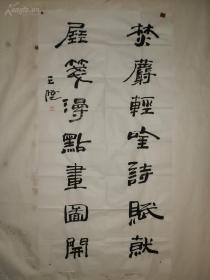 焚麝輕吟詩賦就
展箋漫點畫圖開